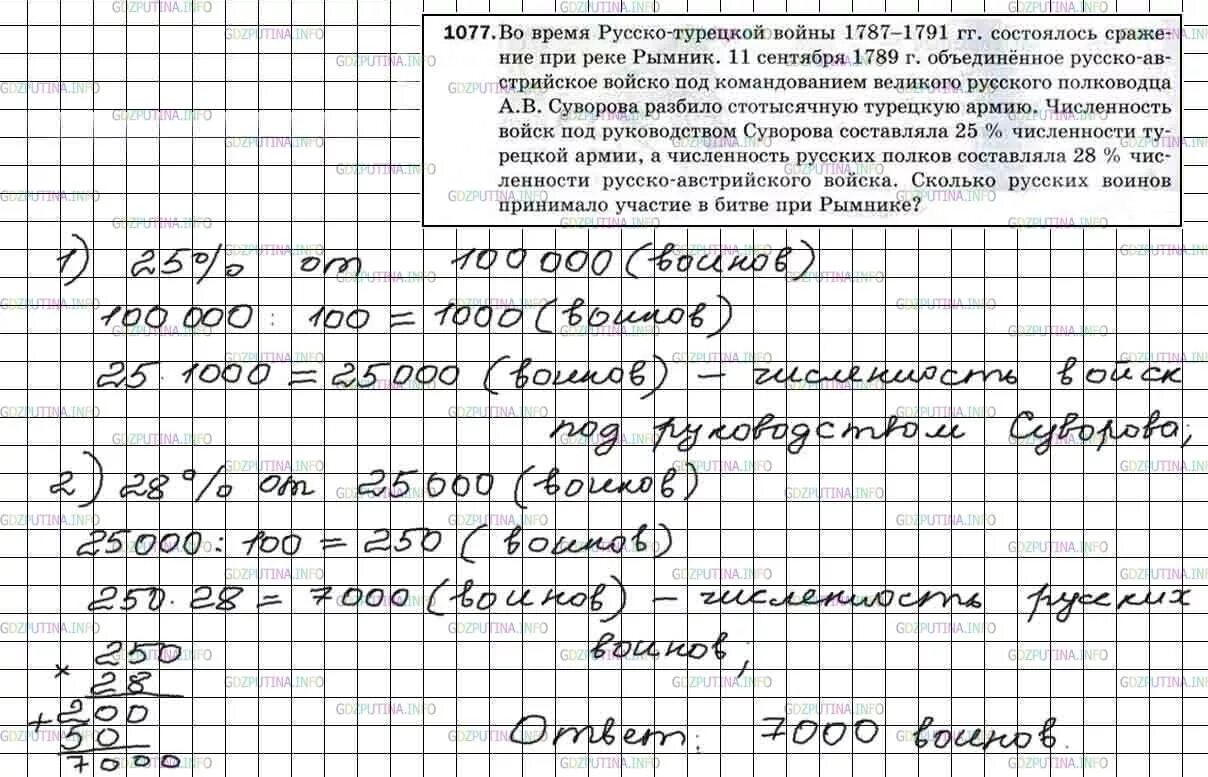 1077. Во время Русско-турецкой войны 1787–1791 гг. состоялось сраже-
ние при реке Рымник. 11 сентября 1789 г. объединённое русско-ав-
стрийское войско под командованием великого русского полководца
А.В. Суворова разбило стотысячную турецкую армию. Численность
войск под руководством Суворова составляла 25 % численности ту-
рецкой армии, а численность русских полков составляла 28 % чис-
ленности русско-австрийского войска. Сколько русских воинов
принимало участие в битве при Рымнике?
1) 25% от 100 000 (воинов)
100 000 : 100 = 1000 (воинов)
25 · 1000 = 25000 (воинов) – численность войск
под руководством Суворова;
2) 28% от 25000 (воинов)
25000 : 100 = 250 (воинов)
250 · 28 = 7000 (воинов) – численность русских
воинов;
× 250
28
+ 200
50
7000
Ответ: 7000 воинов.
GDZPUTINA.INFO